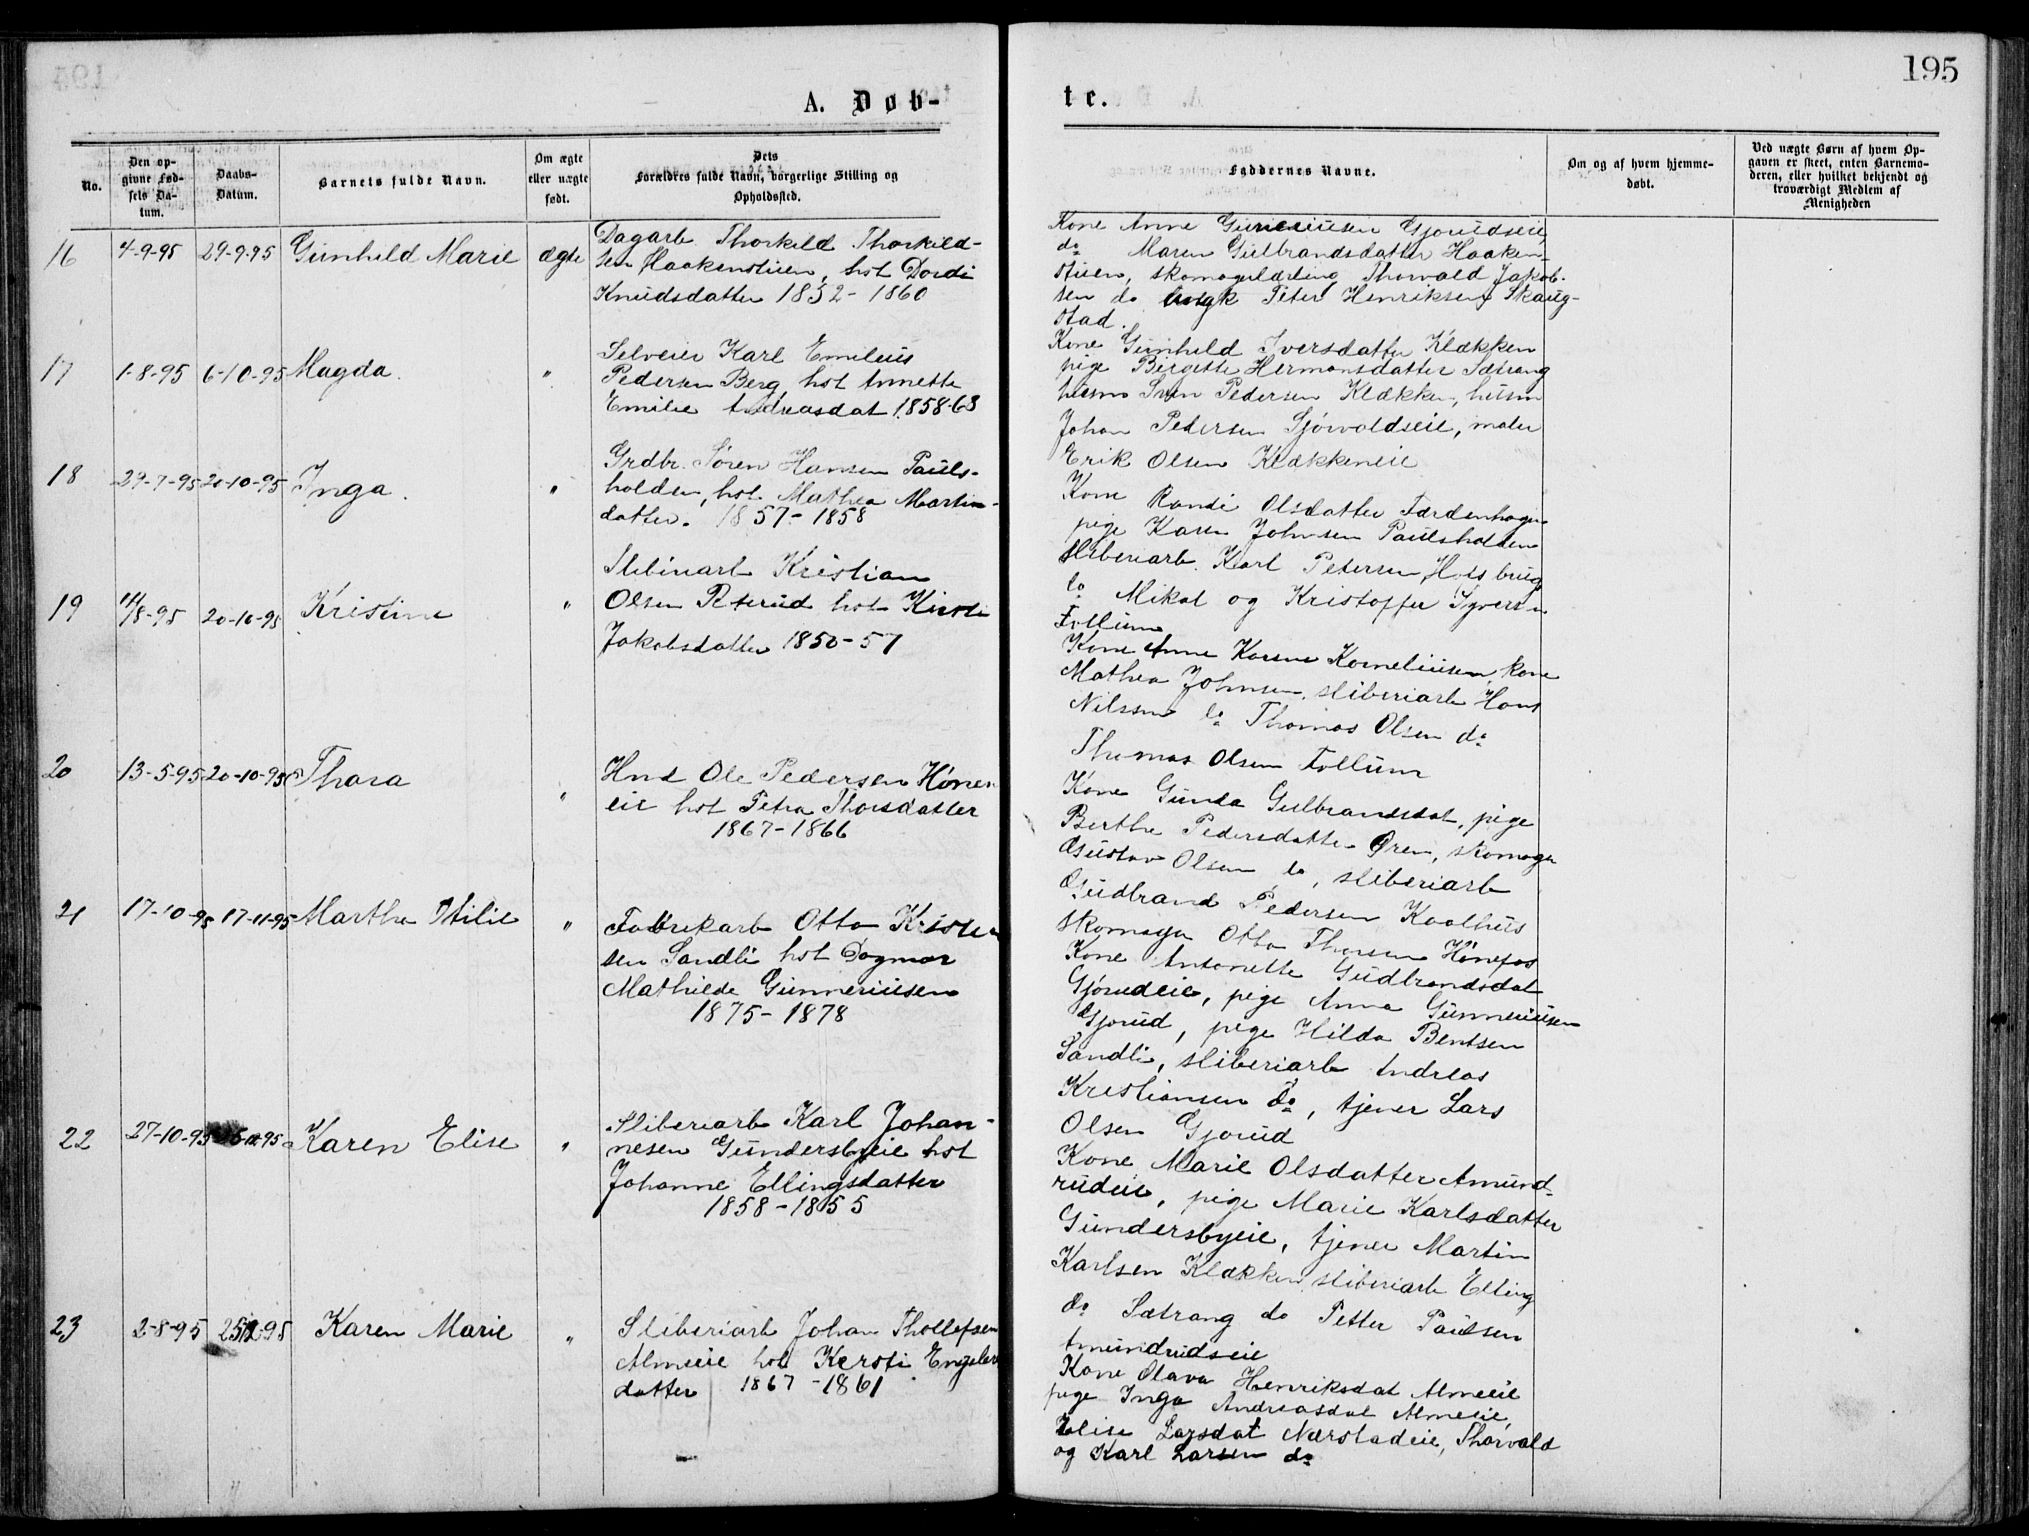 195
A. Døb-
te.
No.
Den op-
givne Fød-
sels Da-
tum.
Daabs-
Datum.
Barnets fulde Navn.
Om ægte
eller uægte
født.
Dets
Forældres fulde Navn, borgerlige Stilling og
Opholdssted.
Faddernes Navne.
Om og af hvem hjemme-
døbt.
Ved uægte Børn af hvem Op-
gaven er skeet, enten Barnemo-
deren, eller hvilket bekjendt og
troværdigt Medlem af
Menigheden
16 4-9-95 29-9-95 Gunhild Marie ægte
Dagarb Thorkild Thorkild-
sen Haakenstuen, hst Dordi
Knudsdatter 1852-1860
Kone Anne Gunneriusen Gjorudseie,
do Maren Gulbrandsdatter Haaken-
stuen, skomagerlærling Thorvald Jakob-
sen do Peter Henriksen Skaug-
stad.
17 1-8-95 6-10-95 Magda. "
Selveier Karl Emilius
Pedersen Berg, hst Annette
Emilie Andreasdat 1858-63
Kone Gunhild Iversdatter Klækken
pige Birgitte Hermansdatter Sætrang
husm Sven Pedersen Klækken, husm
Johan Pedersen Sjørvoldseie, maler
Erik Olsen Klækkeneie
18 29-7-95 20-10-95 Inga. "
Grdbr. Søren Hansen Pauls-
holden, hst. Mathea Martin-
datter. 1857-1858
Kone Randi Olsdatter Færdenhagen
pige Karen Johnsen Paulsholden
sliberiarb. Karl Petersen, Hofsbrug
do Mikal og Kristoffer Syversen
Follum
19 14/8-95 20-10-95 Kristine "
Slibriarb Kristian
Olsen Rterud hst Kirsti
Jakobsdatter 1850-57
Kone Anne Karine Korneliusen, kone
Mathea Johnsen, sliberiarb Hans
Nilssen do Thomas Olsen do
Thomas Olsen Follum
20 13-5-95 20-10-95 Thora "
Hnd Ole Pedersen Hønen
eie hst Petra Thorsdatter
1867-1866
Kone Gunda Gulbrandsdat, pige
Berthe Pedersdatter Øren, skomager
Gustav Olsen do, sliberiarb
Gudbrand Pedersen Kaalhus
skomager Otto Thorsen Hønefos
21 17-10-95 17-11-95 Marthe Otilie "
Fabrikarb Otto Kristen
sen Sandli hst Dagmar
Mathilde Gunneriusen
1875-1878
Kone Antonette Gudbrandsdat
Gjørudeie, pige Anna Gunneriusen
Gjorud, pige Hilda Bentsen
Sandli, sliberiarb Andreas
Kristiansen do, tjener Lars
Olsen Gjorud
22 27-10-95 Karen Elise "
Sliberiarb Karl Johan-
nesen Gundersbyeie hst
Johanne Ellingsdatter
1858-1855
Kone Marie Olsdatter Amund-
rudeie, pige Marie Karlsdatter
Gundersbyeie, tjener Martin
Karlsen Klækken, sliberiarb Elling
do Sætrang do Petter Paulsen
Amundrudseie
23 2-8-95 25 12 95 Karen Marie "
Sliberiarb Johan Thollefsen
Almeie hst Kersti Engebret
datter 1867-1861
Kone Olava Henriksdat Almeeie
pige Inga Andreasdat Almeeie,
Elise Larsdat Nærstadeie, Thorvald
og Karl Larsen do